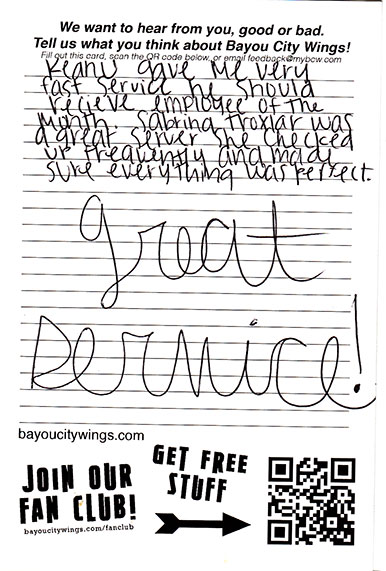 We want to hear from you, good or bad.
Tell us what you think about Bayou City Wings!
Fill out this card, scan the QR code below, or email feedback@mybcw.com
Keanu gave me very
fast service he should
recieve employee of the
month Sabrina Troxlar was
a great server she checked
up frequently and made
sure everything was perfect.
great
service!
bayoucitywings.com
JOIN OUR
FAN CLUB!
bayoucitywings.com/fanclub
GET FREE
STUFF